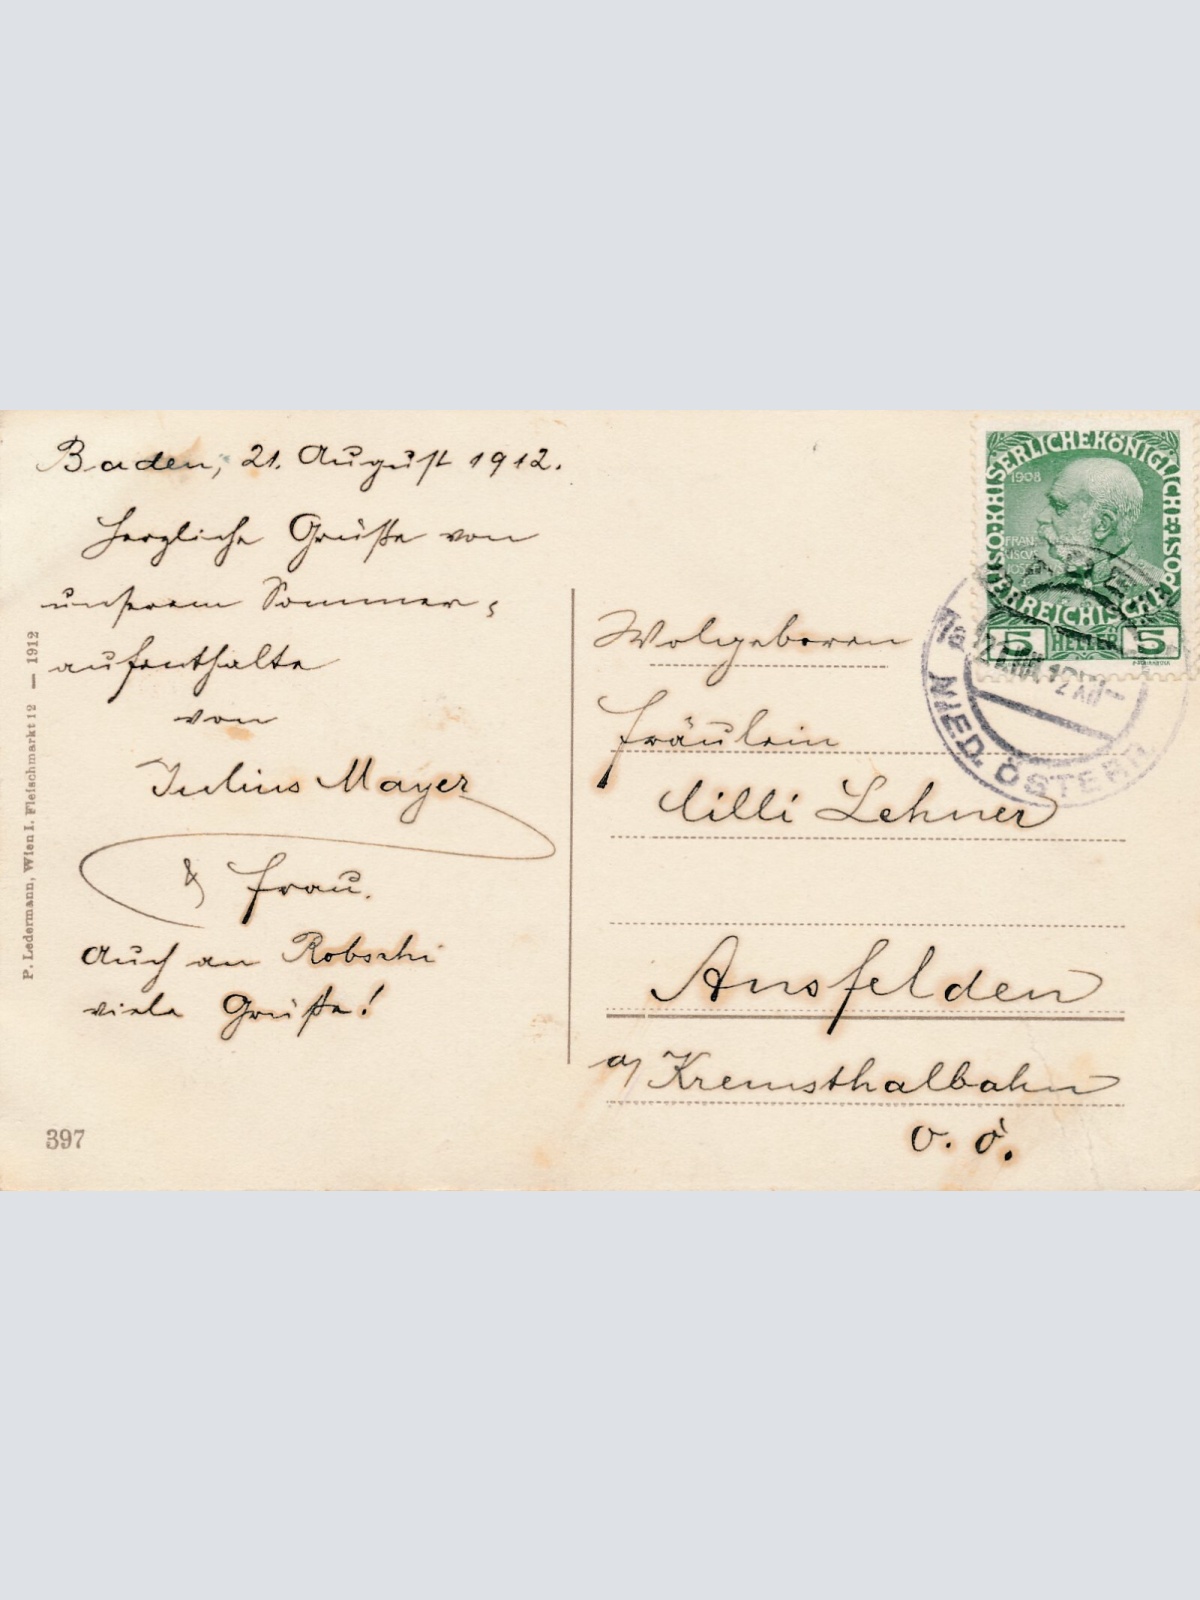 Baden, 21. August 1912.
Herzliche Grüße von
unserem Sommer=
aufenthalte
von
Julius Mayer
& Frau.
Auch an Robschi
viele Grüße!
397
P. Ledermann, Wien I. Fleischmarkt 12 — 1912
Wolgeboren
Fräulein
Cilli Lehner
Ansfelden
a/ Kremsthalbahn
O. Ö.
KAISERLICHE KÖNIGLICHE
ÖSTERREICHISCHE POST
1908
FRAN
CISCVS
5 HELLER 5
NIED. ÖSTERR